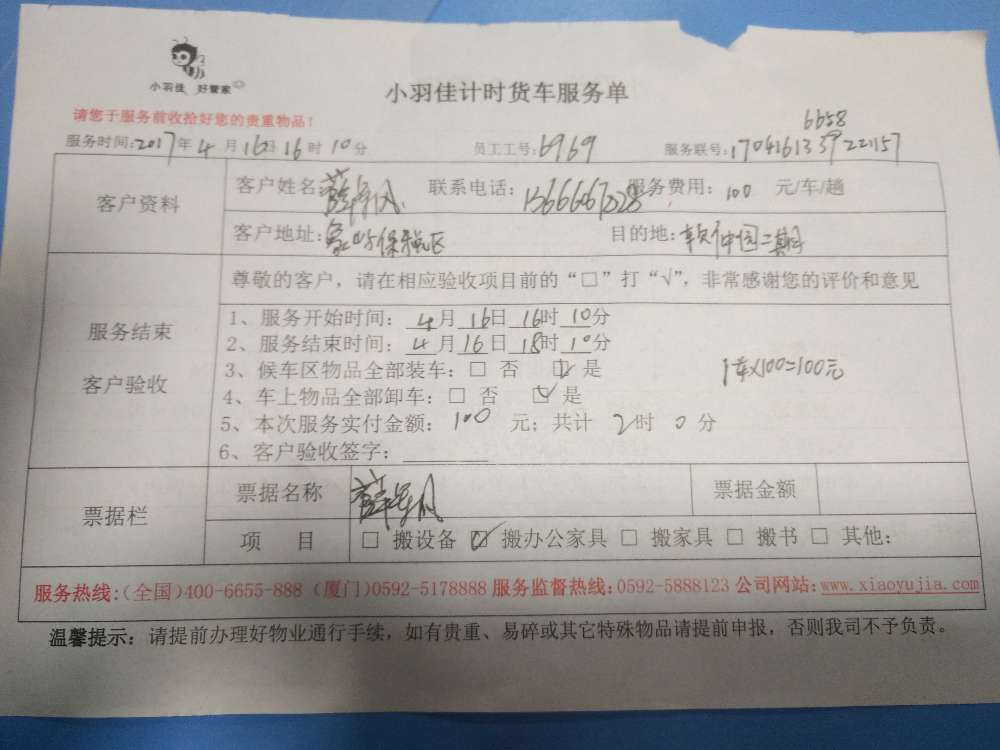 小羽佳 好管家
小羽佳计时货车服务单
请您于服务前收拾好您的贵重物品！
6658
服务时间:2017年4月16日16时10分 员工工号:6969 服务联号:
客户资料
客户姓名: 联系电话: 服务费用: 100 元/车/趟
客户地址:保税区 目的地:软件园二期
尊敬的客户，请在相应验收项目前的“□”打“√”，非常感谢您的评价和意见
服务结束
客户验收
1、服务开始时间: 4月16日16时10分
2、服务结束时间: 4月16日18时10分
3、候车区物品全部装车:□ 否 ☑ 是
1车x100=100元
4、车上物品全部卸车:□ 否 ☑ 是
5、本次服务实付金额: 100 元; 共计 2时 0分
6、客户验收签字:
票据栏
票据名称 票据金额
项 目 □ 搬设备 ☑ 搬办公家具 □ 搬家具 □ 搬书 □ 其他:
服务热线:(全国)400-6655-888 (厦门)0592-5178888 服务监督热线:0592-5888123 公司网站:www.xiaoyujia.com
温馨提示: 请提前办理好物业通行手续，如有贵重、易碎或其它特殊物品请提前申报，否则我司不予负责。